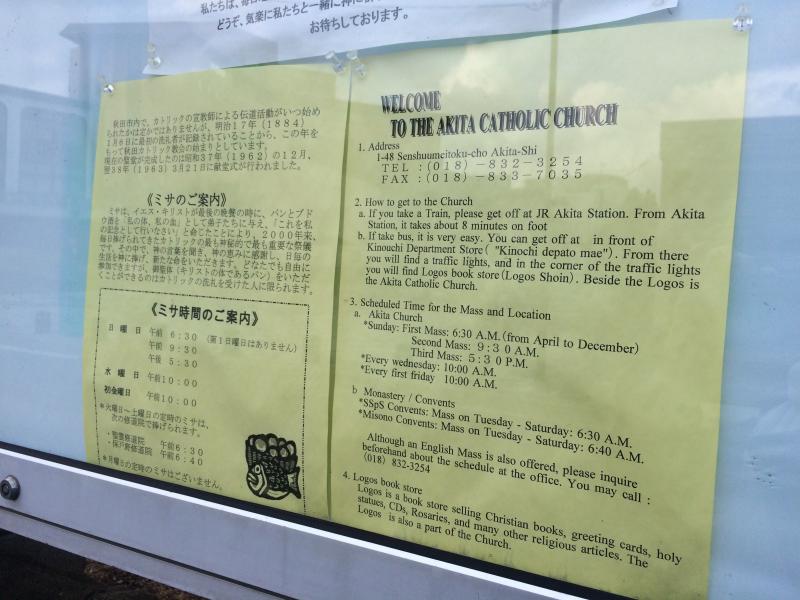 私たちは、毎日
どうぞ、気楽に私たちと一緒に神に
お待ちしております。
秋田市内で、カトリックの宣教師による伝道活動がいつ始め
られたかは定かではありませんが、明治17年（1884）
1月6日に最初の洗礼者が記録されていることから、この年を
もって秋田カトリック教会の始まりとしています。
現在の聖堂が完成したのは昭和37年（1962）の12月、
翌38年（1963）3月21日に献堂式が行われました。
《ミサのご案内》
ミサは、イエス・キリストが最後の晩餐の時に、パンとブド
ウ酒を「私の体、私の血」として弟子たちに与え、「これを私
の記念として行いなさい」と命じたことにより、2000年来、
毎日捧げられてきたカトリックの最も神秘的で最も重要な祭儀
です。その中で、神の言葉を聞き、神の恵みに感謝し、日毎の
生活を神に捧げ、新たな命をいただきます。どなたでも自由に
参加できますが、御聖体（キリストの体であるパン）をいただ
くことができるのはカトリックの洗礼を受けた人に限られます。
《ミサ時間のご案内》
日曜日 午前 6:30 （第1日曜日はありません）
午前 9:30
午後 5:30
水曜日 午前10:00
初金曜日 午前10:00
*火曜日～土曜日の定時のミサは、
次の修道院で捧げられます。
・聖霊修道院 午前6:30
・修道院 午前6:40
*月曜日の定時のミサはございません。
WELCOME
TO THE AKITA CATHOLIC CHURCH
1. Address
1-48 Senshuumeitoku-cho Akita-Shi
TEL :(018)-832-3254
FAX :(018)-833-7035
2. How to get to the Church
a. If you take a Train, please get off at JR Akita Station. From Akita
Station, it takes about 8 minutes on foot
b. If take bus, it is very easy. You can get off at in front of
Kinouchi Department Store( "Kinochi depato mae"). From there
you will find a traffic lights, and in the corner of the traffic lights
you will find Logos book store(Logos Shoin). Beside the Logos is
the Akita Catholic Church.
3. Scheduled Time for the Mass and Location
a. Akita Church
*Sunday: First Mass: 6:30 A.M.(from April to December)
Second Mass: 9:30 A.M.
Third Mass: 5:30 P.M.
*Every wednesday: 10:00 A.M.
*Every first friday 10:00 A.M.
b Monastery / Convents
*SSpS Convents: Mass on Tuesday - Saturday: 6:30 A.M.
*Misono Convents: Mass on Tuesday - Saturday: 6:40 A.M.
Although an English Mass is also offered, please inquire
beforehand about the schedule at the office. You may call :
(018) 832-3254
4. Logos book store
Logos is a book store selling Christian books, greeting cards, holy
statues, CDs, Rosaries, and many other religious articles. The
Logos is also a part of the Church.